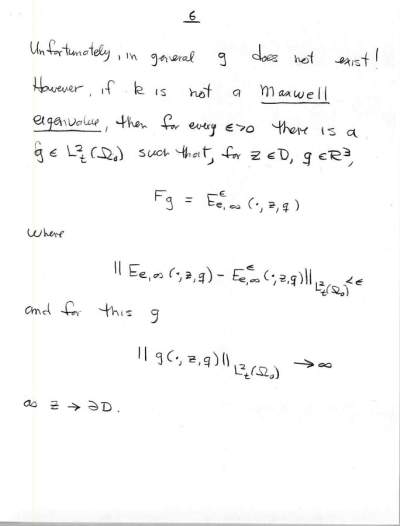 6
Unfortunately, in general g does not exist!
However, if k is not a Maxwell
eigenvalue, then for every ε>0 there is a
g ∈ L²ₜ(Ω₀) such that, for z ∈ D, q ∈ R³,
Fg = E^ε_{e,∞}(·, z, q)
where
‖E_{e,∞}(·, z, q) - E^ε_{e,∞}(·, z, q)‖_{L²ₜ(Ω₀)} < ε
and for this g
‖g(·, z, q)‖_{L²ₜ(Ω₀)} → ∞
as z → ∂D.